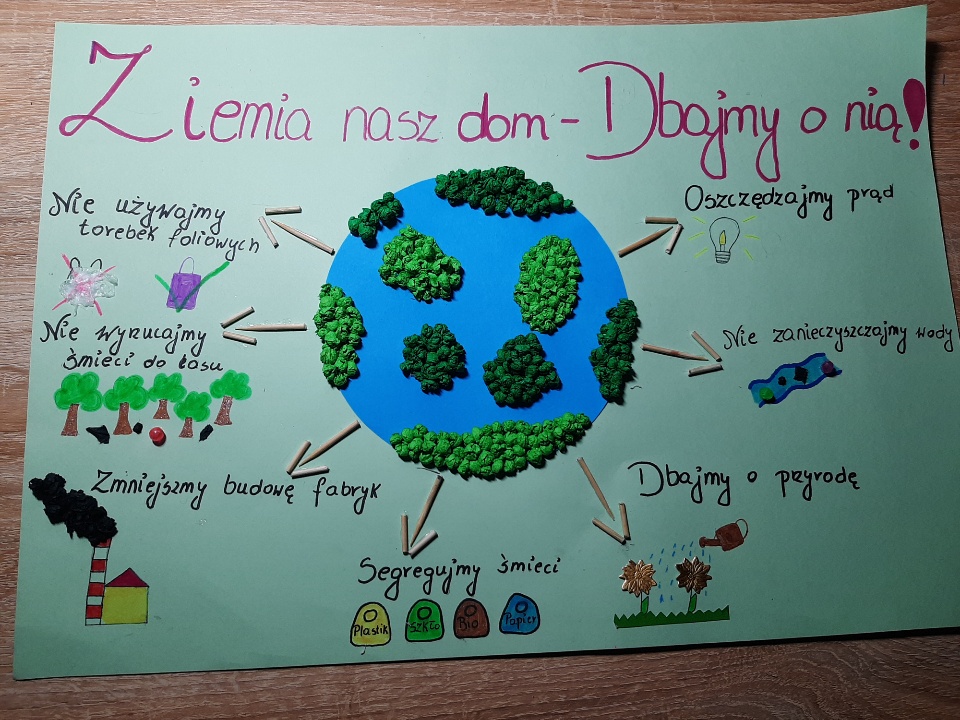 Ziemia nasz dom - Dbajmy o nią!
Nie używajmy
torebek foliowych
Oszczędzajmy prąd
Nie wyrucajmy
śmieci do lasu
Nie zanieczyszczajmy wody
Zmniejszmy budowę fabryk
Dbajmy o przyrodę
Segregujmy śmieci
Plastik
Szkło
Bio
Papier